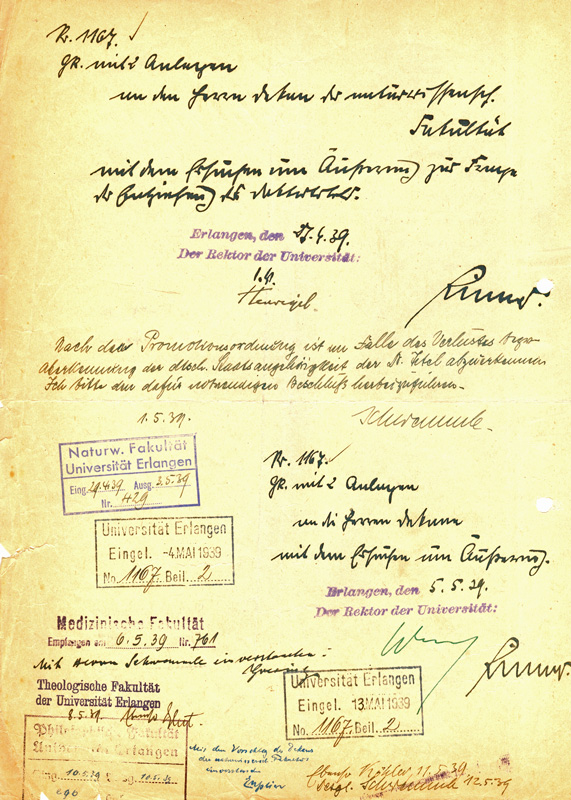 Nr. 1167.
Gk. mit 2 Anlagen
an den Herrn Dekan der naturwissensch.
Fakultät
mit dem Ersuchen um Äußerung zur Frage
der Entziehung des Doktortitels.
Erlangen, den 27.4.39.
Der Rektor der Universität:
I.V.
Nach der Promotionsordnung ist im Falle des Verlustes bezw.
Aberkennung der dtsch. Staatsangehörigkeit der Dr. Titel abzuerkennen
Ich bitte den dafür notwendigen Beschluß herbeizuführen.
1.5.39.
Schwemmle.
Naturw. Fakultät
Universität Erlangen
Eing. 29.4.39 Ausg. 3.5.39
Nr. 429
Nr. 1167.
Gk. mit 2 Anlagen
an die Herren Dekane
mit dem Ersuchen um Äußerung.
Universität Erlangen
Eingel. -4.MAI 1939
No. 1167. Beil. 2
Erlangen, den 5.5.39.
Der Rektor der Universität:
Medizinische Fakultät
Empfangen am 6.5.39 Nr. 761
Mit Herrn Schwemmle einverstanden.
Theologische Fakultät
der Universität Erlangen
8.5.39.
Universität Erlangen
Eingel. 13.MAI 1939
No. 1167. Beil. 2
Philosophische Fakultät
Universität Erlangen
Eing. 10.5.39 Ausg. 10.5.39
690
Mit dem Vorschlag des Dekans
der naturwissensch. Fakultät
einverstanden
Ebenso Köhler, 11.5.39
Desgl. Schwemmle 12.5.39